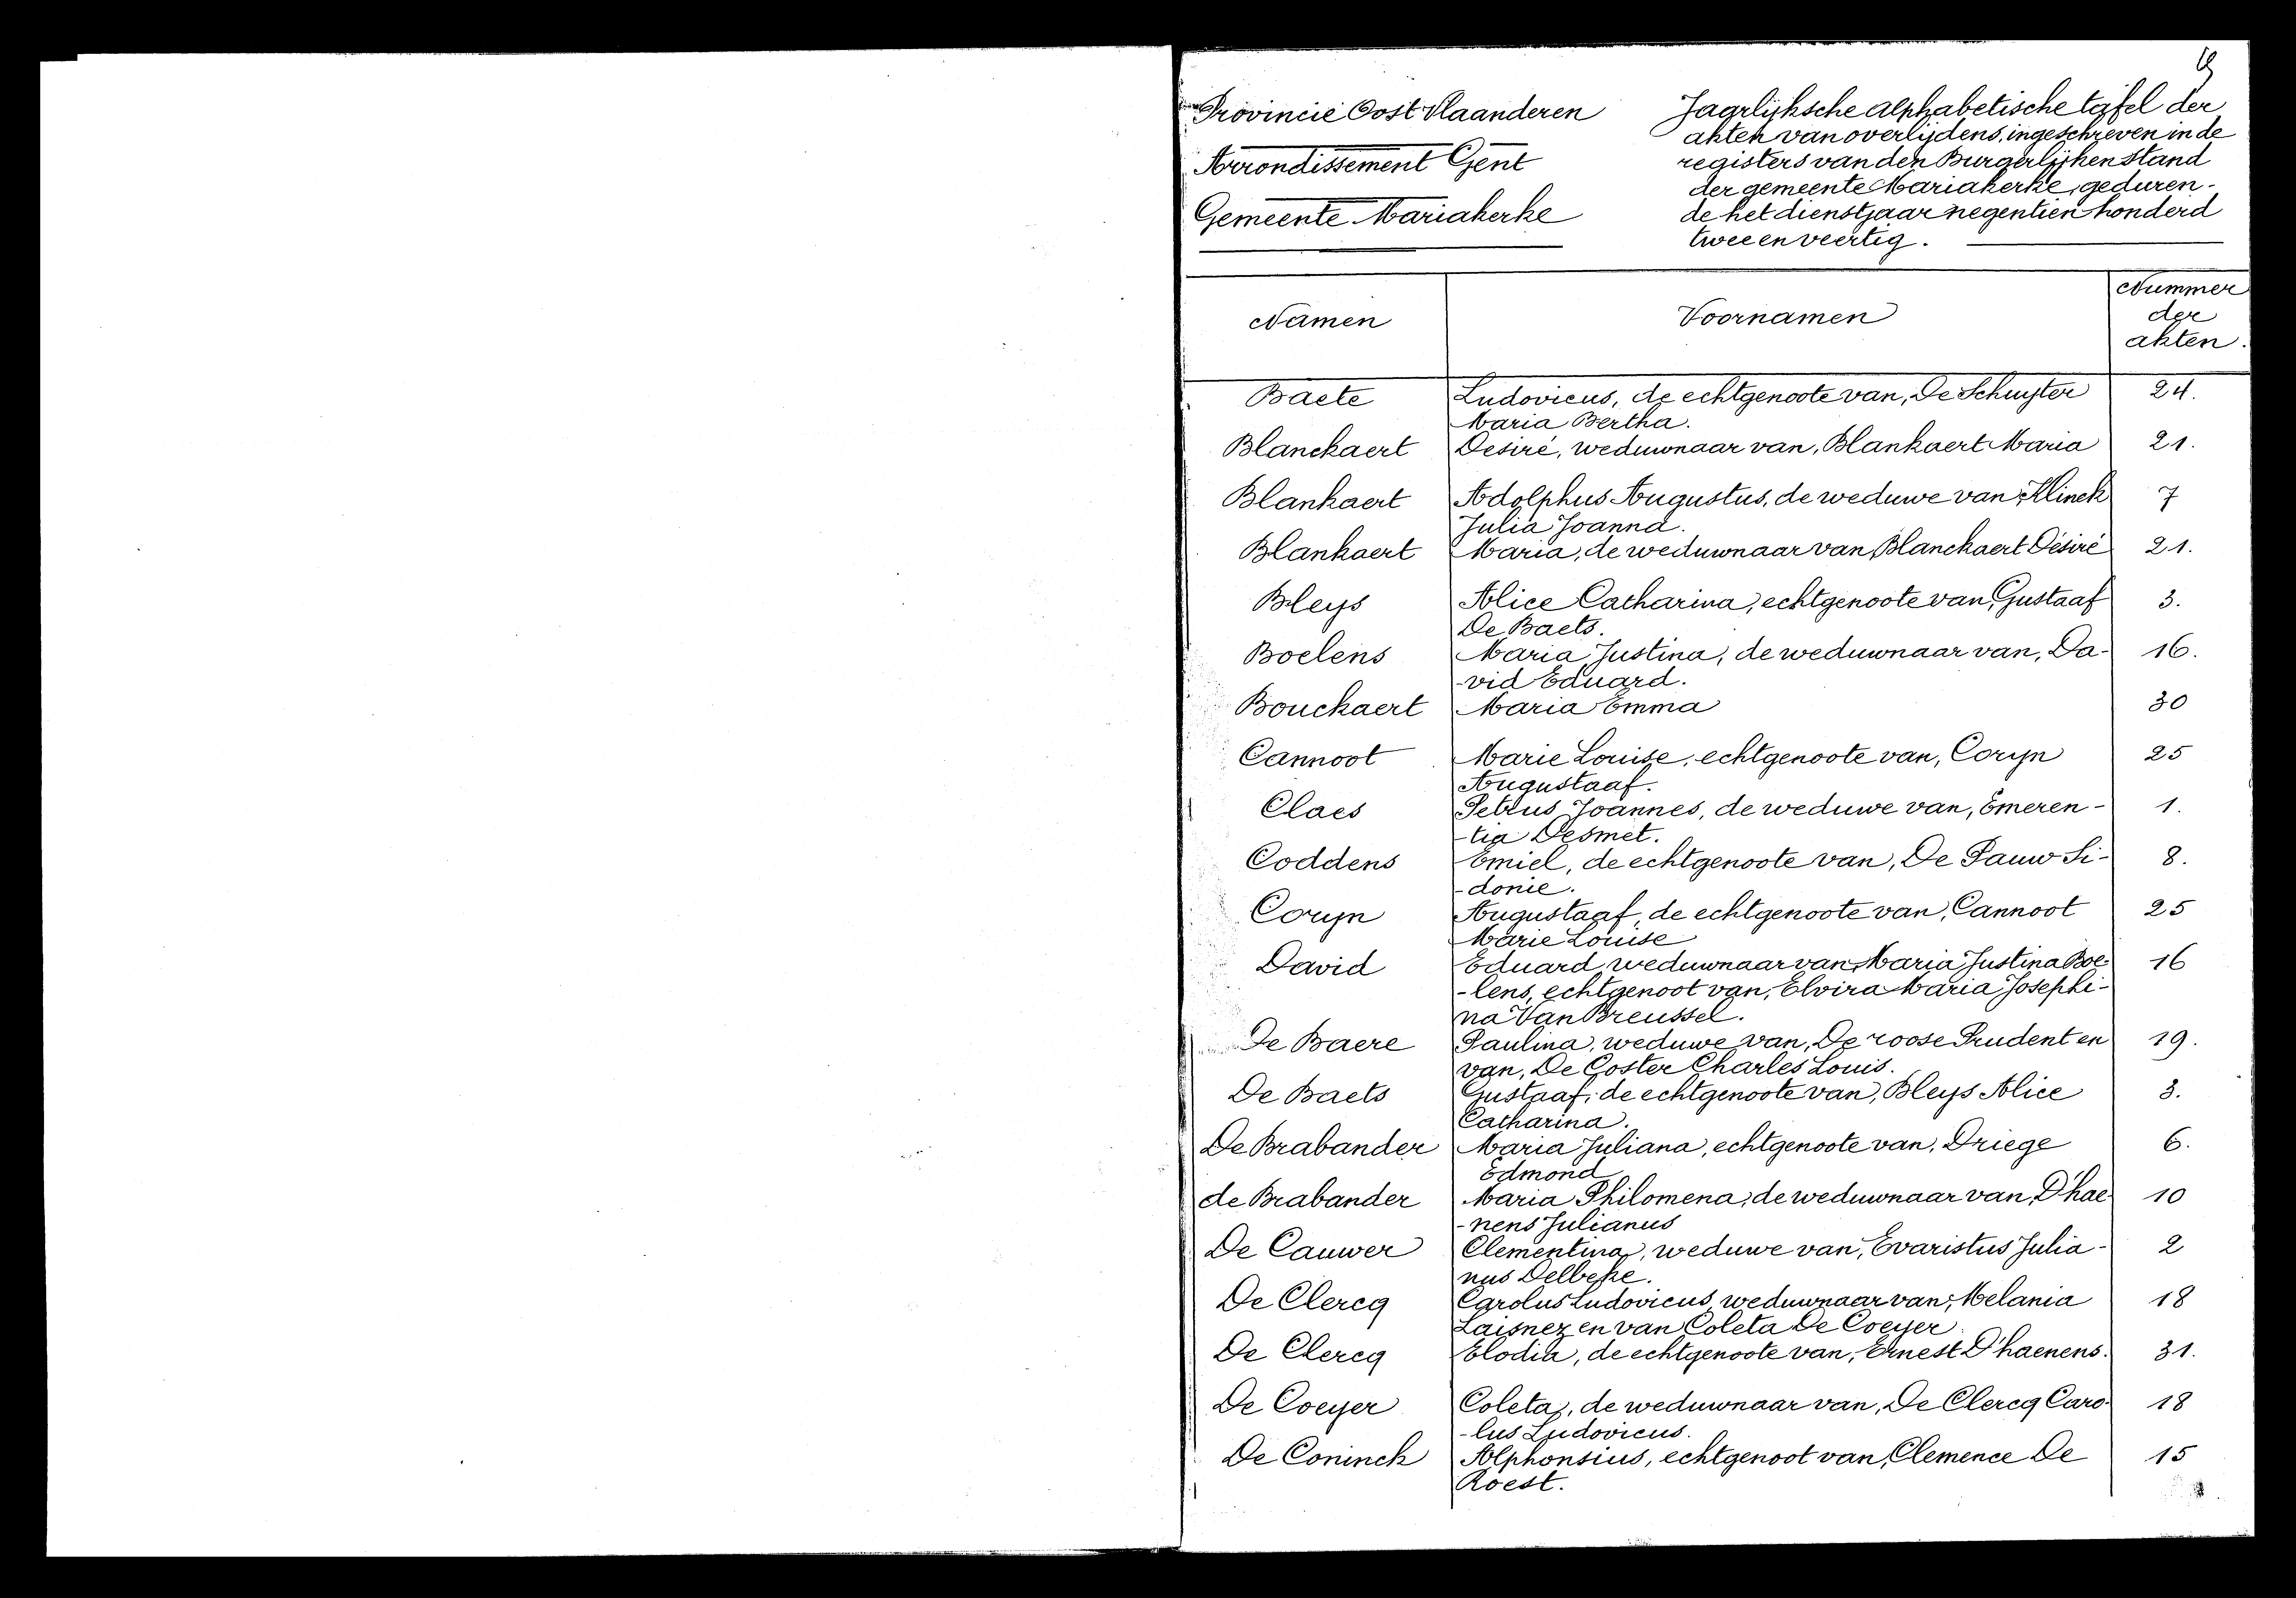 Provincie Oost Vlaanderen
Arrondissement Gent
Gemeente Mariakerke
Jaarlijksche alphabetische tafel der
akten van overlijdens, ingeschreven in de
registers van den Burgerlijken stand
der gemeente Mariakerke, geduren-
de het dienstjaar negentien honderd
twee en veertig.
Namen Voornamen Nummer
der
akten.
Baete Ludovicus, de echtgenoote van, De Schuyter 24.
Maria Bertha.
Blanckaert Desiré, weduwnaar van, Blankaert Maria 21.
Blankaert Adolphus Augustus, de weduwe van, Klinck 7
Julia Joanna.
Blankaert Maria, de weduwnaar van, Blanckaert Désiré 21.
Bleys Alice Catharina, echtgenoote van, Gustaaf 3.
De Baets.
Boelens Maria Justina, de weduwnaar van, Da- 16.
-vid Eduard.
Bouckaert Maria Emma 30
Cannoot Marie Louise, echtgenoote van, Coryn 25
Augustaaf.
Claes Petrus Joannes, de weduwe van, Emeren- 1.
-tia Desmet.
Coddens Emiel, de echtgenoote van, De Pauw Si- 8.
-donie.
Coryn Augustaaf, de echtgenoote van, Cannoot 25
Marie Louise
David Eduard weduwnaar van, Maria Justina Boe- 16
-lens, echtgenoot van, Elvira Maria Josephi-
na Van Breussel.
De Baere Paulina, weduwe van, De roose Prudent en 19.
van, De Coster Charles Louis.
De Baets Gustaaf, de echtgenoote van, Bleys Alice 3.
Catharina.
De Brabander Maria Juliana, echtgenoote van, Driege 6.
Edmond
de Brabander Maria Philomena, de weduwnaar van, D'hae- 10
-nens Julianus
De Cauwer Clementina, weduwe van, Evaristus Julia- 2
nus Delbeke.
De Clercq Carolus Ludovicus, weduwnaar van, Melania 18
Laisnez en van Coleta De Coeyer
De Clercq Elodia, de echtgenoote van, Ernest D'haenens. 31.
De Coeyer Coleta, de weduwnaar van, De Clercq Caro- 18
-lus Ludovicus.
De Coninck Alphonsius, echtgenoot van, Clemence De 15
Roest.